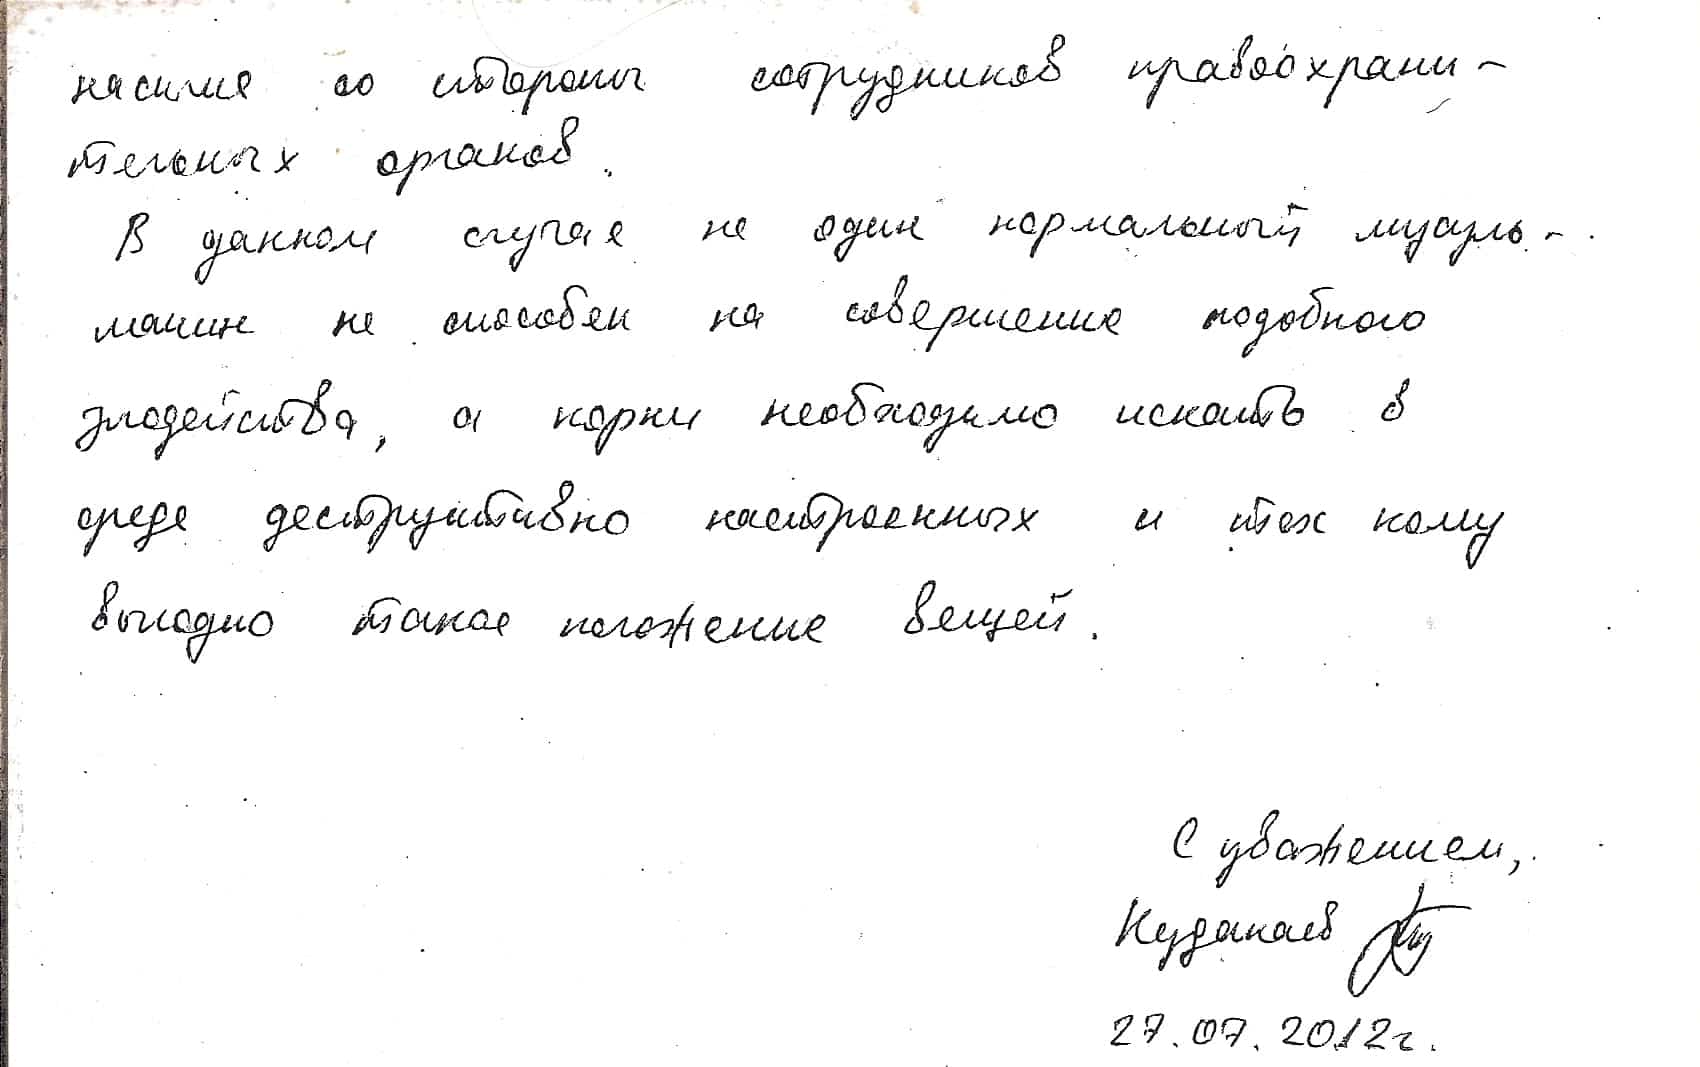 насилие со стороны сотрудников правоохрани-
тельных органов.
В данном случае не один нормальный мусуль-
манин не способен на совершение подобного
злодейства, а корни необходимо искать в
среде деструктивно настроенных и тех кому
выгодно такое положение вещей.
С уважением,
Кудакаев
27.07.2012г.